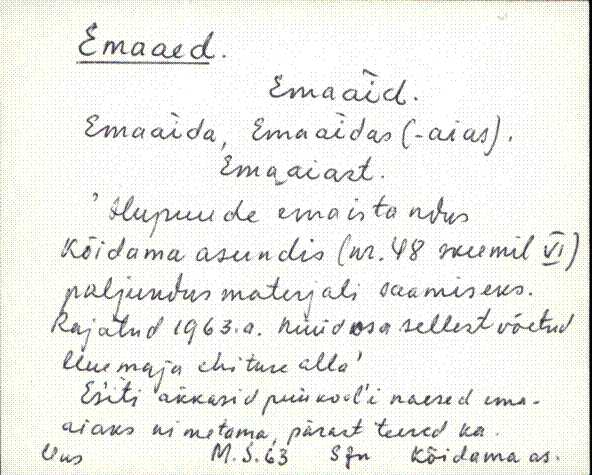 Emaaed.
Emaàid.
Emaàida, Emaàidas (-aias).
Emaaiast.
'Ilupuude emaistandus
Kõidama asundis (nr. 48 skeemil VI)
paljundusmaterjali saamiseks.
Rajatud 1963. a. Nüüd osa sellest võetud
uue maja ehituse alla'
Esiti akkasid puukool'i naesed ema-
aiaks nimetama, pärast teesed ka.
Uus M.S. 63 Sjn Kõidama as.